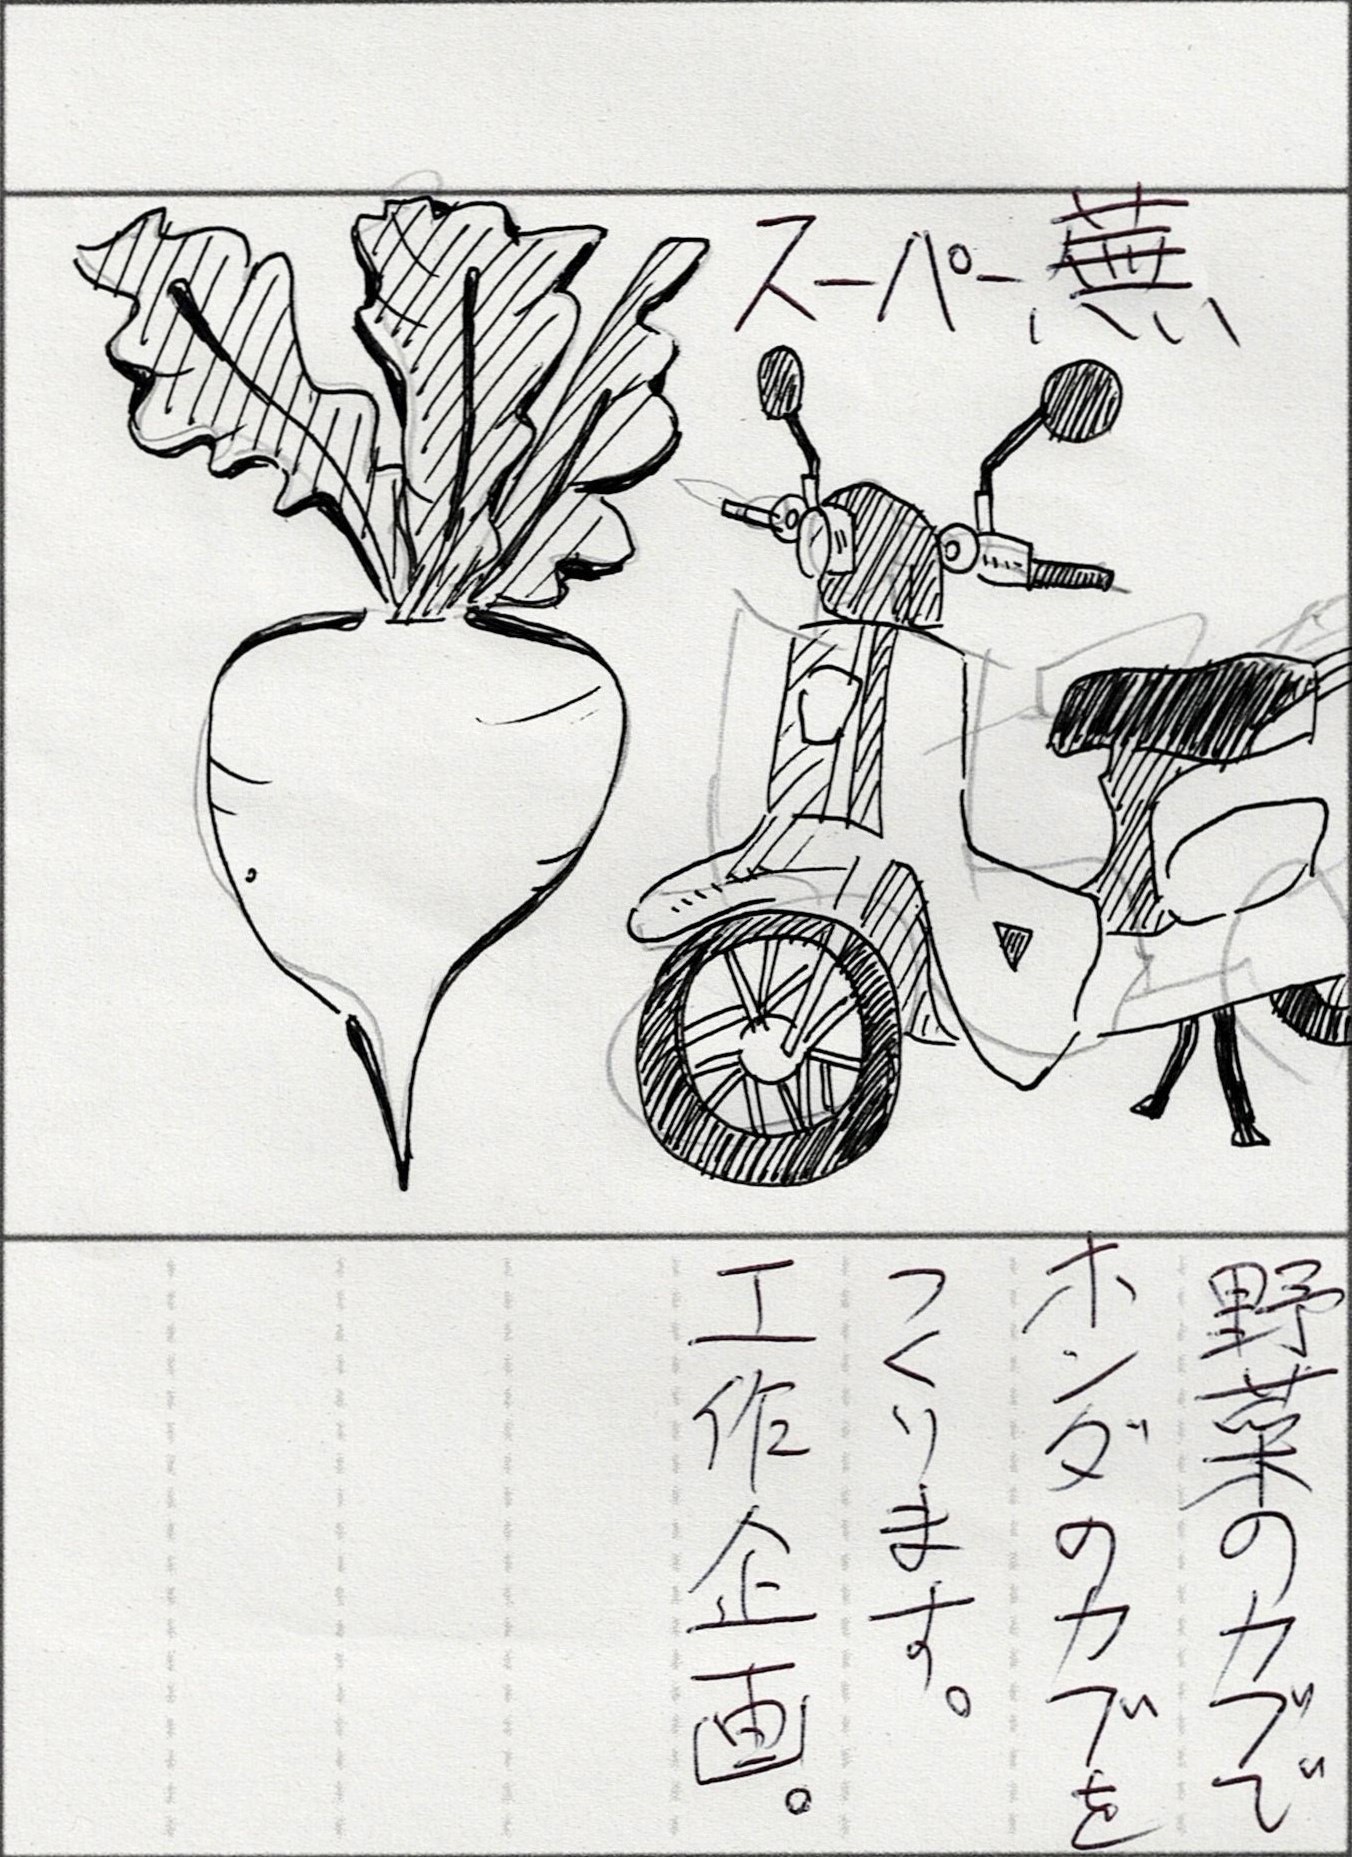 スーパー蕪
野菜のカブで
ホンダのカブを
つくります。
工作企画。